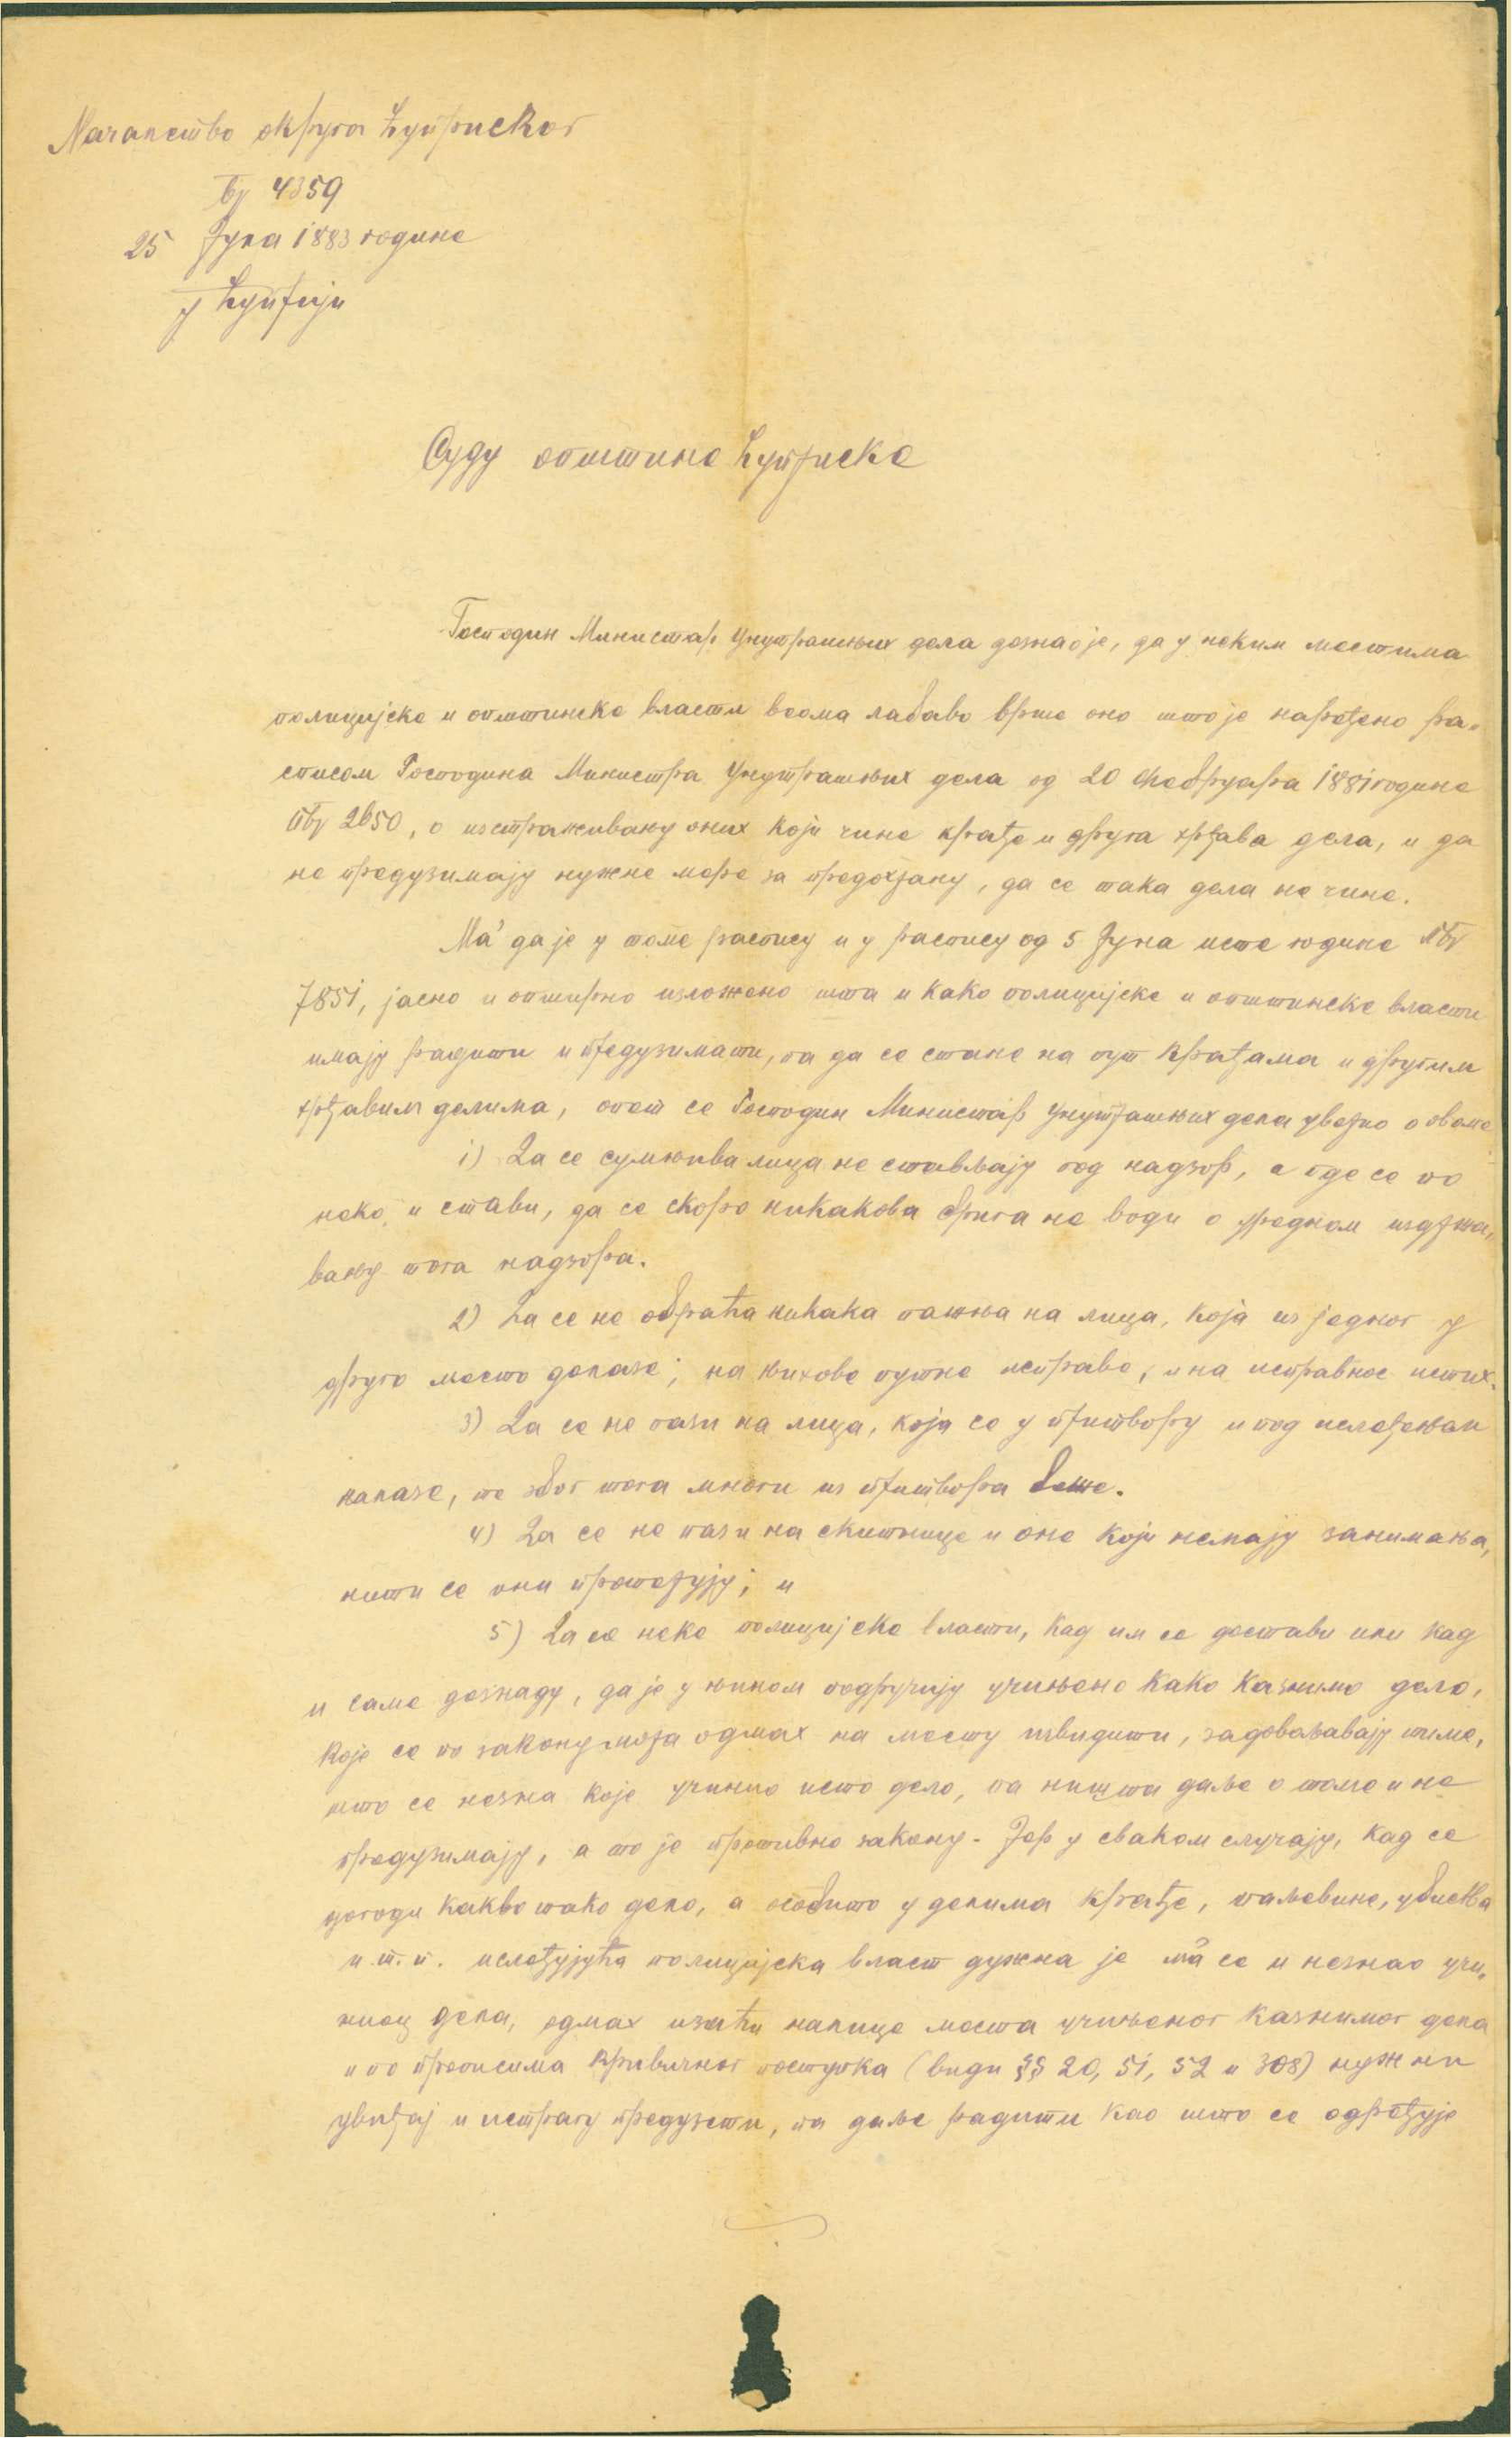 Начелство округа ћуприског
Бр 4359
25 Јула 1883 године
у Ћуприји
Суду општине ћуприске
Господин Министар Унутрашњих дела дознао је, да у неким местима
полицијске и општинске власти веома лабаво врше оно што је наређено ра-
списом Господина Министра Унутрашњих дела од 20 Фебруара 1881 године
ПБр 2650, о истраживању оних који чине крађе и друга хрђава дела, и да
не предузимају нужне мере за предохрану, да се така дела не чине.
Ма' да је у томе распису и у распису од 5 Јуна исте године ПБр
7851, јасно и опширно изложено шта и како полицијске и општинске власти
имају радити и предузимати, па да се стане на пут крађама и другим
хрђавим делима, опет се Господин Министар Унутрашњих дела уверио о овоме
1) Да се сумњива лица не стављају под надзор, а где се по
неко и стави, да се скоро никакова брига не води о уредном издржа-
вању тога надзора.
2) Да се не обраћа никака пажња на лица, која из једног у
друго место долазе; на њихове путне исправе, и на исправност истих.
3) Да се не пази на лица, која се у притвору и под ислеђењем
налазе, те због тога многи из притвора беже.
4) Да се не пази на скитнице и оне који немају занимања,
нити се они протерују; и
5) Да се неке полицијске власти, кад им се достави или кад
и саме дознаду, да је у њином подручију учињено како казнимо дело,
које се по закону мора одмах на месту извидити, задовољавају тиме,
што се незна које учинио исто дело, па ништа даље о томе и не
предузимају, а то је противно закону. Јер у сваком случају, кад се
догоди какво тако дело, а особито у делима крађе, паљевине, убиства
и. т. п. ислеђујућа полицијска власт дужна је ма се и незнао учи-
ниоц дела, одмах изаћи налице места учињеног казнимог дела
и по прописима кривичног поступка (види §§ 20, 51, 52 и 308) нужни
увиђај и истрагу предузети, па даље радити као што се одређује